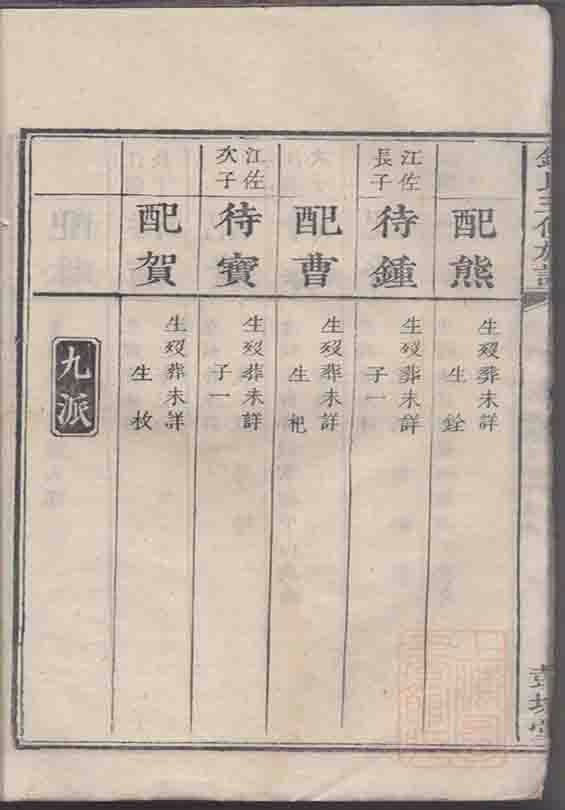 配熊
生歿葬未詳
生銓
江佐
長子
待鍾
生歿葬未詳
子一
配曹
生歿葬未詳
生杞
江佐
次子
待寶
生歿葬未詳
子一
配賀
生歿葬未詳
生枚
九派